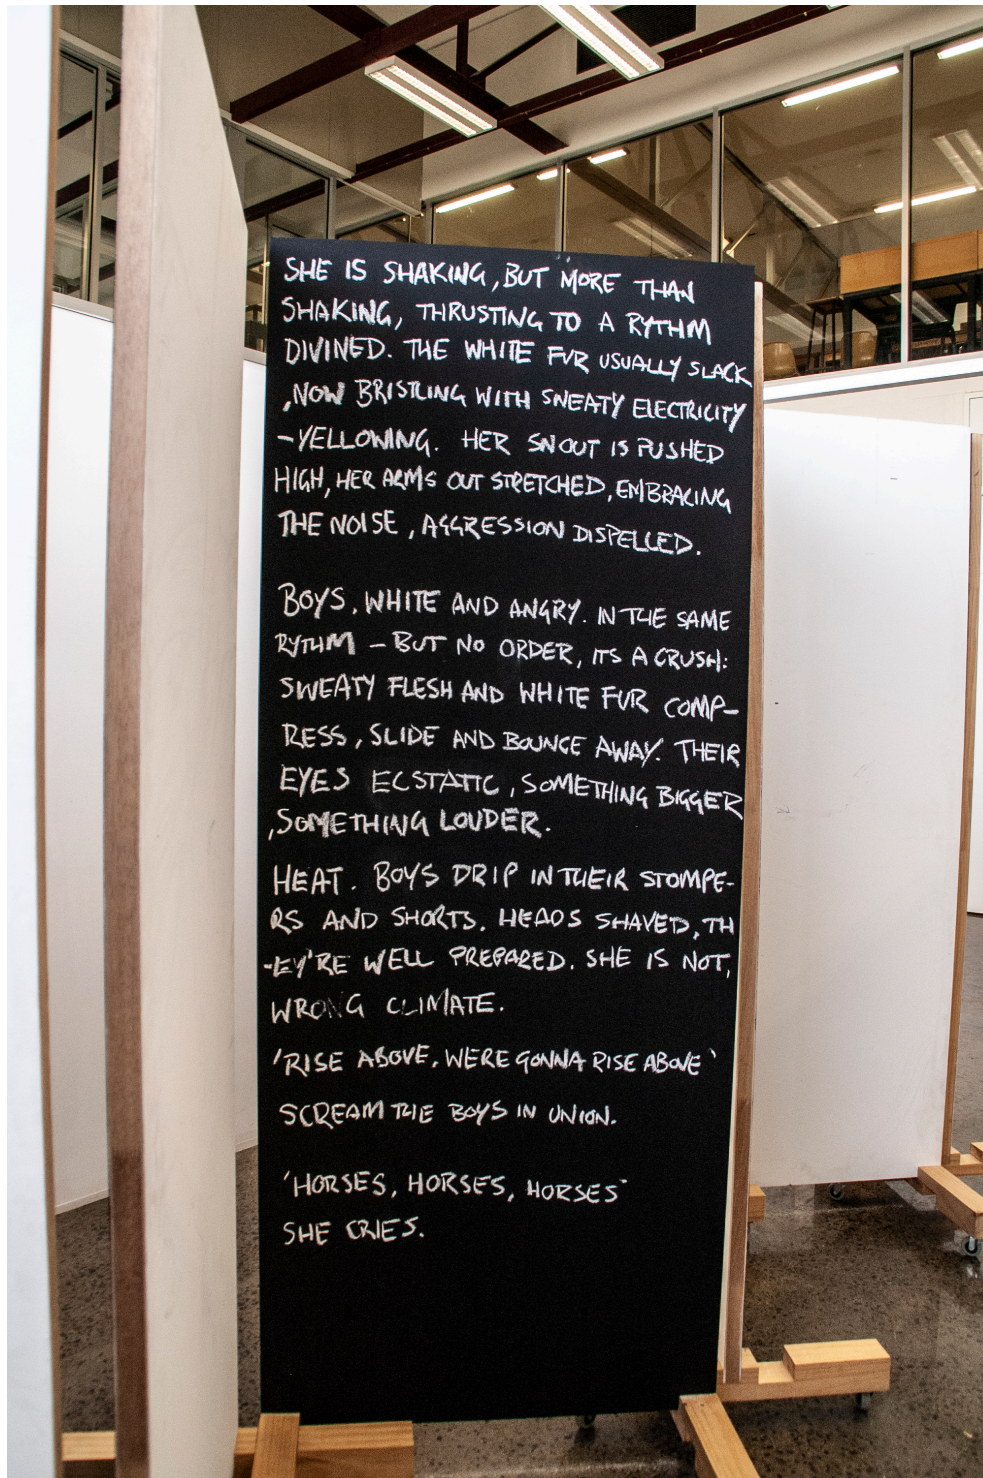 SHE IS SHAKING, BUT MORE THAN
SHAKING, THRUSTING TO A RYTHM
DIVINED. THE WHITE FUR USUALLY SLACK
, NOW BRISTLING WITH SWEATY ELECTRICITY
- YELLOWING. HER SNOUT IS PUSHED
HIGH, HER ARMS OUT STRETCHED, EMBRACING
THE NOISE, AGGRESSION DISPELLED.
BOYS, WHITE AND ANGRY. IN THE SAME
RYTHM - BUT NO ORDER, ITS A CRUSH:
SWEATY FLESH AND WHITE FUR COMP-
RESS, SLIDE AND BOUNCE AWAY. THEIR
EYES ECSTATIC, SOMETHING BIGGER
, SOMETHING LOUDER.
HEAT. BOYS DRIP IN THEIR STOMPE-
RS AND SHORTS. HEADS SHAVED, TH
-EY'RE WELL PREPARED. SHE IS NOT,
WRONG CLIMATE.
'RISE ABOVE, WERE GONNA RISE ABOVE'
SCREAM THE BOYS IN UNION.
'HORSES, HORSES, HORSES'
SHE CRIES.